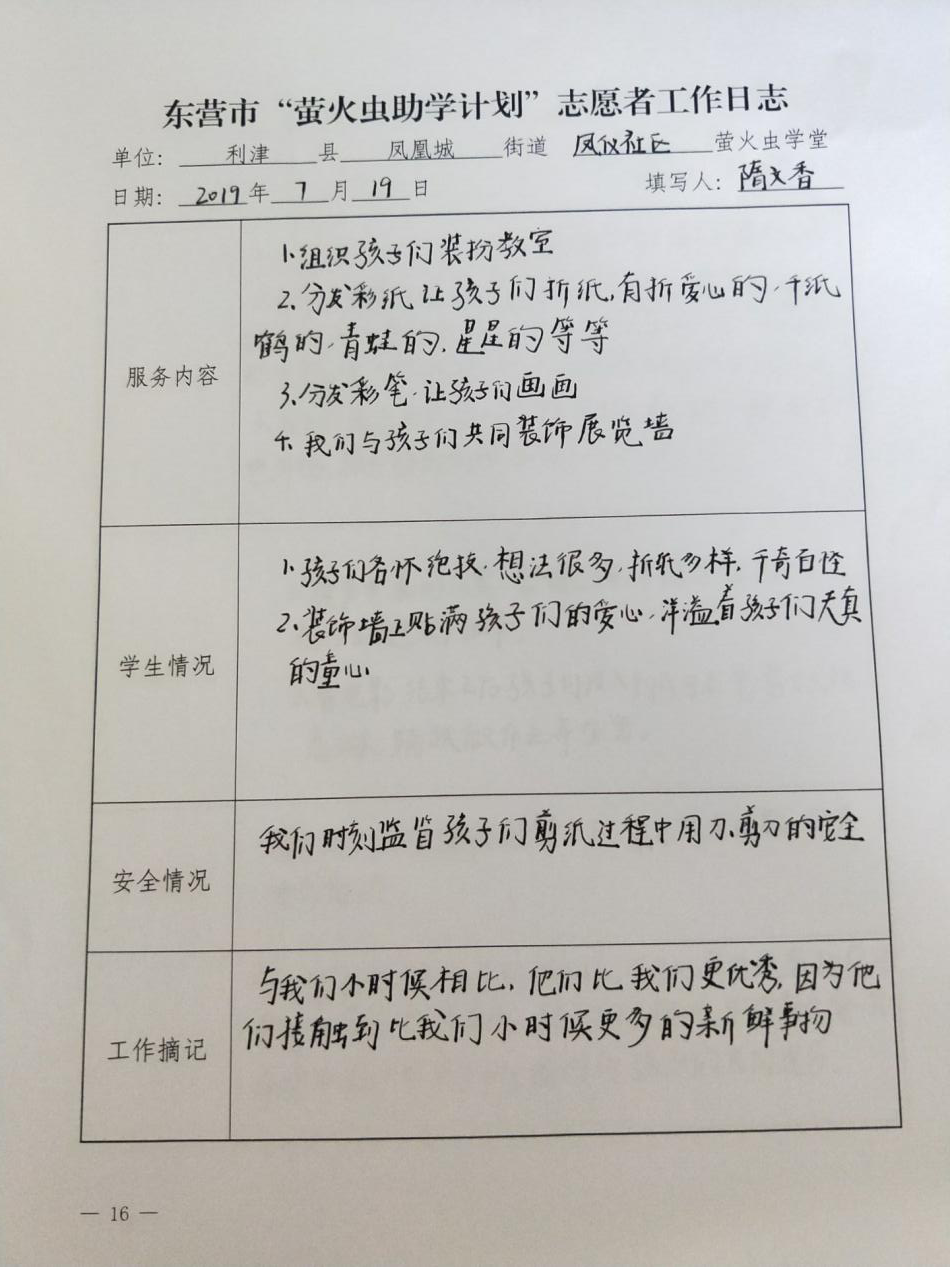 东营市“萤火虫助学计划”志愿者工作日志
单位: 利津 县 凤凰城 街道 凤仪社区 萤火虫学堂
日期: 2019 年 7 月 19 日 填写人: 隋文香
服务内容
1.组织孩子们装扮教室
2.分发彩纸让孩子们折纸,有折爱心的,千纸
鹤的,青蛙的,星星的等等
3.分发彩笔,让孩子们画画
4.我们与孩子们共同装饰展览墙
学生情况
1.孩子们各怀绝技,想法很多,折纸多样,千奇百怪
2.装饰墙上贴满孩子们的爱心,洋溢着孩子们天真
的童心
安全情况
我们时刻监督孩子们剪纸过程中用刀、剪刀的安全
工作摘记
与我们小时候相比,他们比我们更优秀,因为他
们接触到比我们小时候更多的新鲜事物
— 16 —